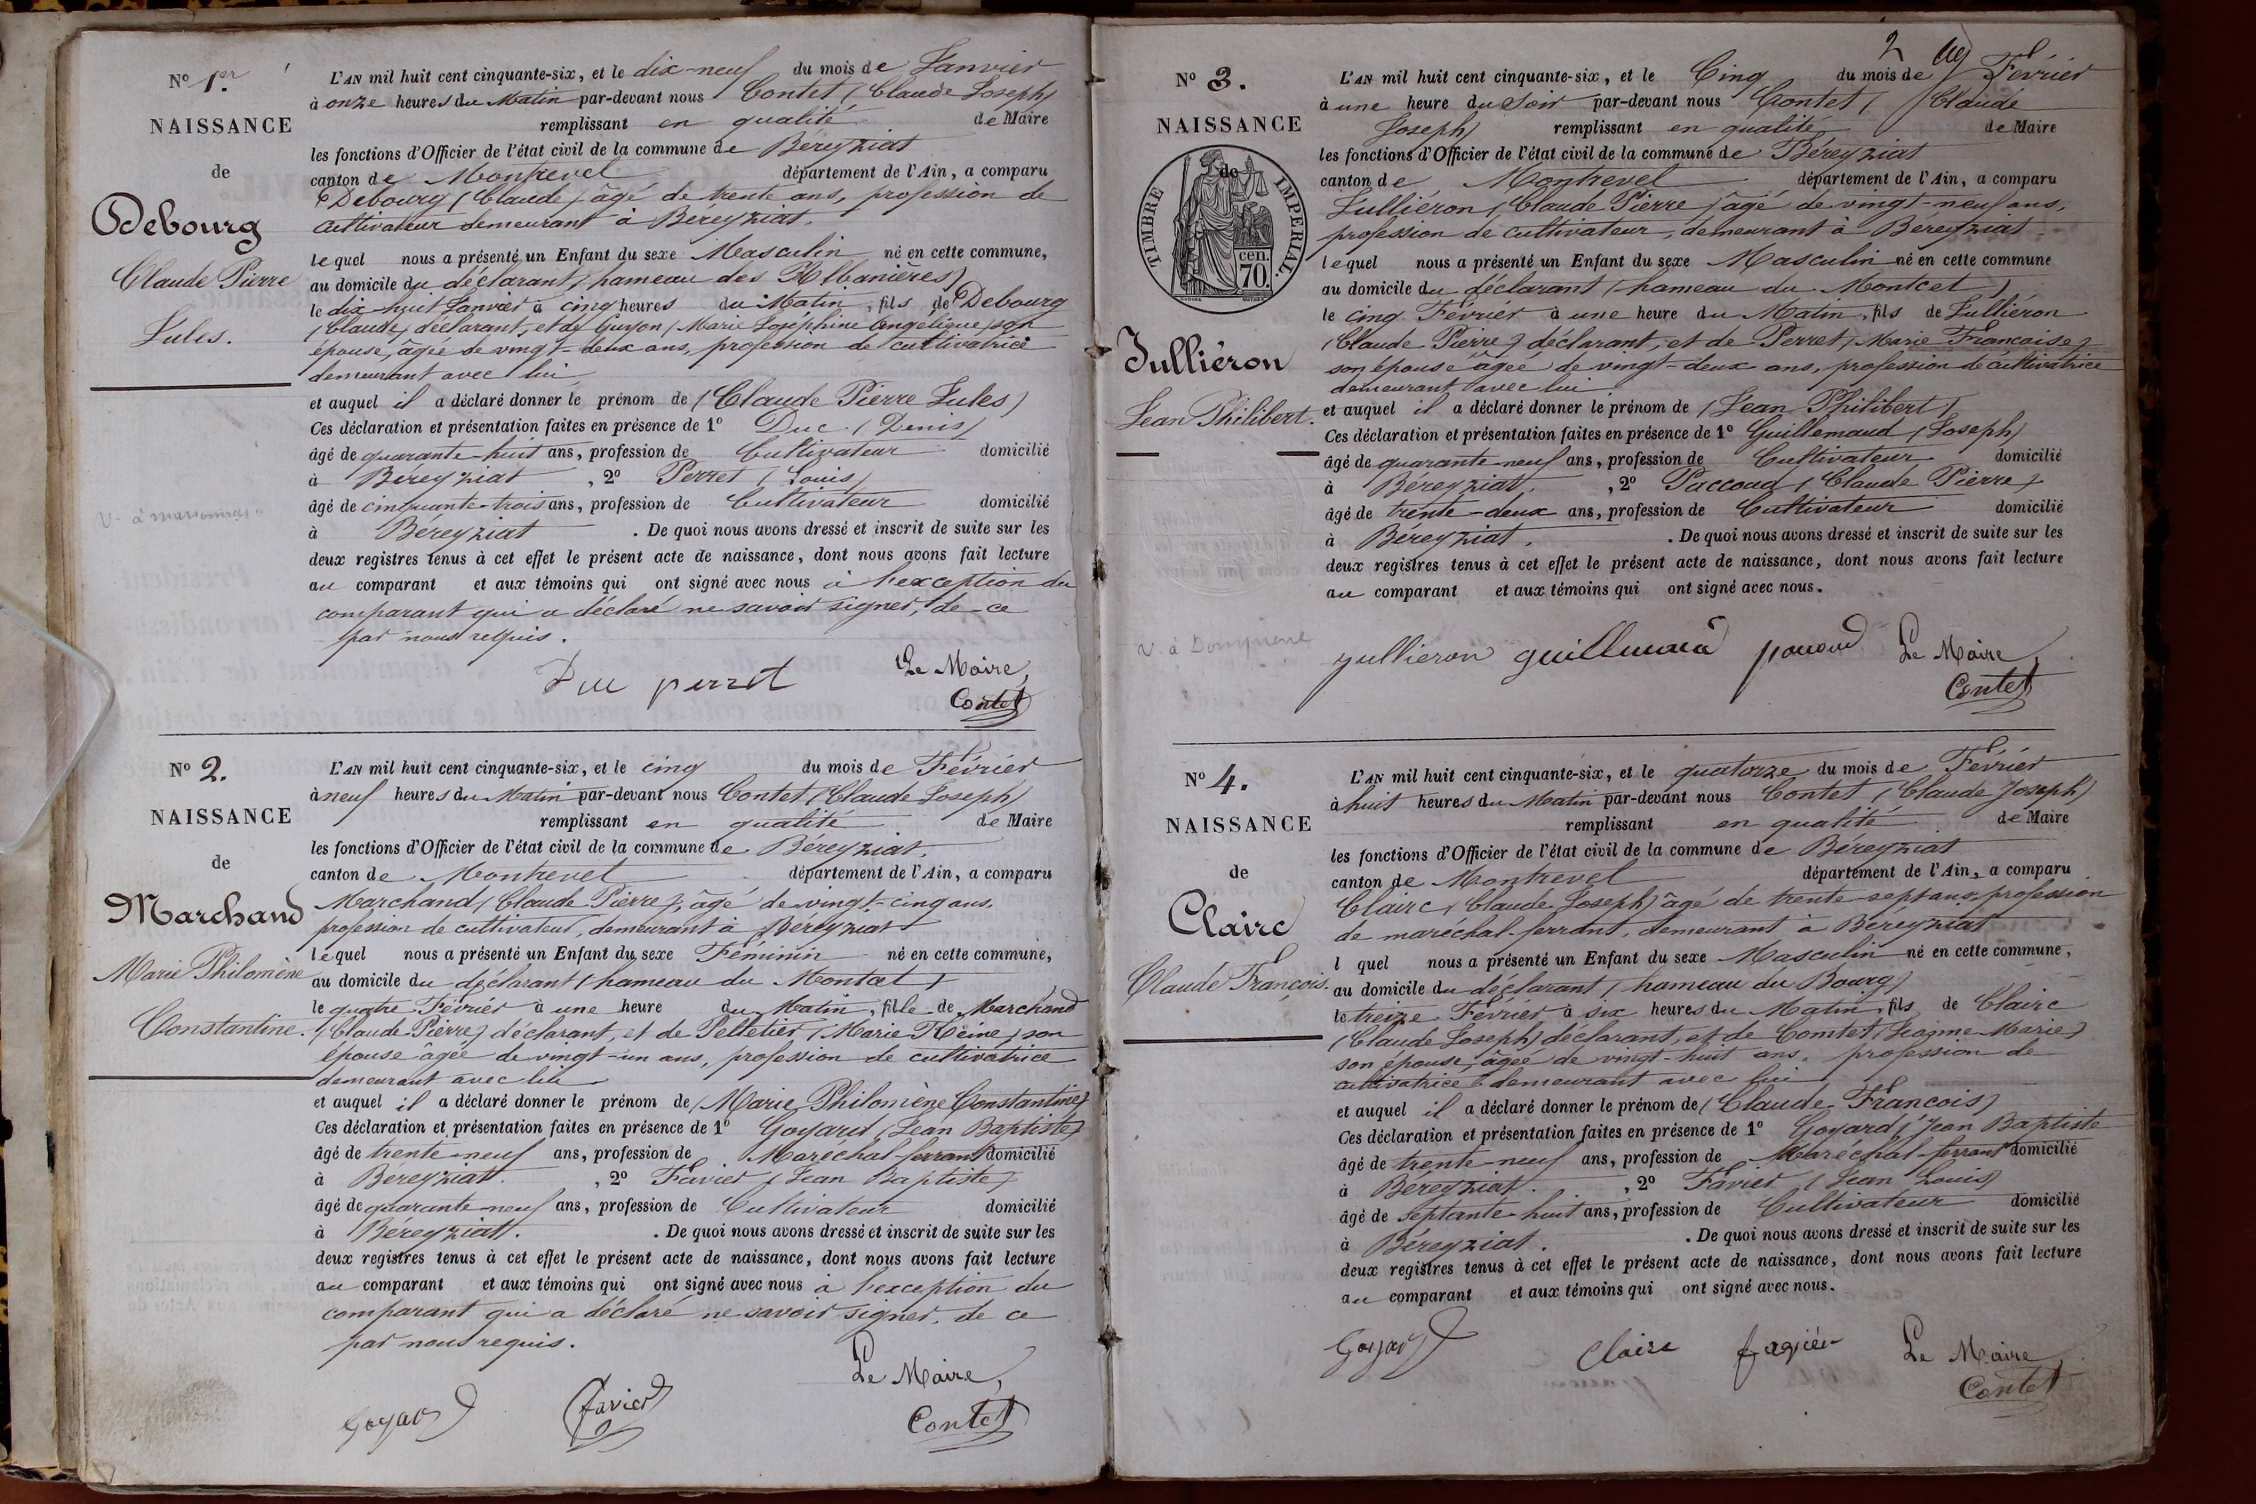 N° 1er.
NAISSANCE
de
Debourg
Claude Pierre
Jules.
L'AN mil huit cent cinquante-six, et le dix-neuf du mois de Janvier
à onze heures du Matin par-devant nous Contet (Claude Joseph)
remplissant en qualité de Maire
les fonctions d'Officier de l'état civil de la commune de Béreyziat
canton de Montrevel département de l'Ain, a comparu
Debourg (Claude) âgé de trente ans, profession de
cultivateur demeurant à Béreyziat.
lequel nous a présenté un Enfant du sexe Masculin né en cette commune,
au domicile du déclarant (hameau des
le dix-huit Janvier à cinq heures du Matin, fils de Debourg
(Claude) déclarant, et de Guyon (Marie Joséphine Angélique) son
épouse, âgée de vingt-deux ans, profession de cultivatrice
demeurant avec lui
et auquel il a déclaré donner le prénom de (Claude Pierre Jules)
Ces déclaration et présentation faites en présence de 1° Duc (Denis)
âgé de quarante-huit ans, profession de Cultivateur domicilié
à Béreyziat, 2° Perret (Louis)
âgé de cinquante-trois ans, profession de Cultivateur domicilié
à Béreyziat. De quoi nous avons dressé et inscrit de suite sur les
deux registres tenus à cet effet le présent acte de naissance, dont nous avons fait lecture
au comparant et aux témoins qui ont signé avec nous à l'exception du
comparant qui a déclaré ne savoir signer, de ce
par nous requis.
Duc perret Le Maire,
Contet
N° 2.
NAISSANCE
de
Marchand
Marie Philomène
Constantine.
L'AN mil huit cent cinquante-six, et le cinq du mois de Février
à neuf heures du Matin par-devant nous Contet (Claude Joseph)
remplissant en qualité de Maire
les fonctions d'Officier de l'état civil de la commune de Béreyziat.
canton de Montrevel département de l'Ain, a comparu
Marchand (Claude Pierre), âgé de vingt-cinq ans,
profession de cultivateur, demeurant à Béreyziat
lequel nous a présenté un Enfant du sexe Féminin né en cette commune,
au domicile du déclarant (hameau du Montcet)
le quatre Février à une heure du Matin, fille de Marchand
(Claude Pierre) déclarant, et de Pelletier (Marie Reine) son
épouse âgée de vingt-un ans, profession de cultivatrice
demeurant avec lui
et auquel il a déclaré donner le prénom de (Marie Philomène Constantine)
Ces déclaration et présentation faites en présence de 1° Goyard (Jean Baptiste)
âgé de trente-neuf ans, profession de Maréchal-ferrant domicilié
à Béreyziat, 2° Favier (Jean Baptiste)
âgé de quarante-neuf ans, profession de Cultivateur domicilié
à Béreyziat. De quoi nous avons dressé et inscrit de suite sur les
deux registres tenus à cet effet le présent acte de naissance, dont nous avons fait lecture
au comparant et aux témoins qui ont signé avec nous à l'exception du
comparant qui a déclaré ne savoir signer, de ce
par nous requis.
Le Maire,
Goyard Favier Contet
2
N° 3.
NAISSANCE
de
TIMBRE IMPERIAL.
cen.
70.
Julliéron
Jean Philibert.
V. à Dompierre
L'AN mil huit cent cinquante-six, et le Cinq du mois de Février
à une heure du Soir par-devant nous Contet (Claude
Joseph) remplissant en qualité de Maire
les fonctions d'Officier de l'état civil de la commune de Béreyziat
canton de Montrevel département de l'Ain, a comparu
Julliéron (Claude Pierre) âgé de vingt-neuf ans,
profession de cultivateur, demeurant à Béreyziat
lequel nous a présenté un Enfant du sexe Masculin né en cette commune
au domicile du déclarant (hameau du Montcet)
le cinq Février à une heure du Matin, fils de Julliéron
(Claude Pierre) déclarant, et de Perret (Marie Françoise)
son épouse âgée de vingt-deux ans, profession de cultivatrice
demeurant avec lui
et auquel il a déclaré donner le prénom de (Jean Philibert)
Ces déclaration et présentation faites en présence de 1° Guillemaud (Joseph)
âgé de quarante-neuf ans, profession de Cultivateur domicilié
à Béreyziat, 2° Paccoud (Claude Pierre)
âgé de trente-deux ans, profession de Cultivateur domicilié
à Béreyziat. De quoi nous avons dressé et inscrit de suite sur les
deux registres tenus à cet effet le présent acte de naissance, dont nous avons fait lecture
au comparant et aux témoins qui ont signé avec nous.
jullieron guillemaud pacoud Le Maire,
Contet
N° 4.
NAISSANCE
de
Clairc
Claude François.
L'AN mil huit cent cinquante-six, et le quatorze du mois de Février
à huit heures du Matin par-devant nous Contet (Claude Joseph)
remplissant en qualité de Maire
les fonctions d'Officier de l'état civil de la commune de Béreyziat
canton de Montrevel département de l'Ain, a comparu
Clairc (Claude Joseph) âgé de trente-sept ans, profession
de maréchal-ferrant, demeurant à Béreyziat
l quel nous a présenté un Enfant du sexe Masculin né en cette commune,
au domicile du déclarant (hameau du Bourg)
le treize Février à six heures du Matin, fils de Clairc
(Claude Joseph) déclarant, et de Comtet (Jeanne Marie)
son épouse, âgée de vingt-huit ans, profession de
cultivatrice demeurant avec lui
et auquel il a déclaré donner le prénom de (Claude François)
Ces déclaration et présentation faites en présence de 1° Goyard (Jean Baptiste
âgé de trente-neuf ans, profession de Maréchal-ferrant domicilié
à Béreyziat, 2° Favier (Jean Louis)
âgé de septante-huit ans, profession de Cultivateur domicilié
à Béreyziat. De quoi nous avons dressé et inscrit de suite sur les
deux registres tenus à cet effet le présent acte de naissance, dont nous avons fait lecture
au comparant et aux témoins qui ont signé avec nous.
Goyard Clairc favier Le Maire
Contet